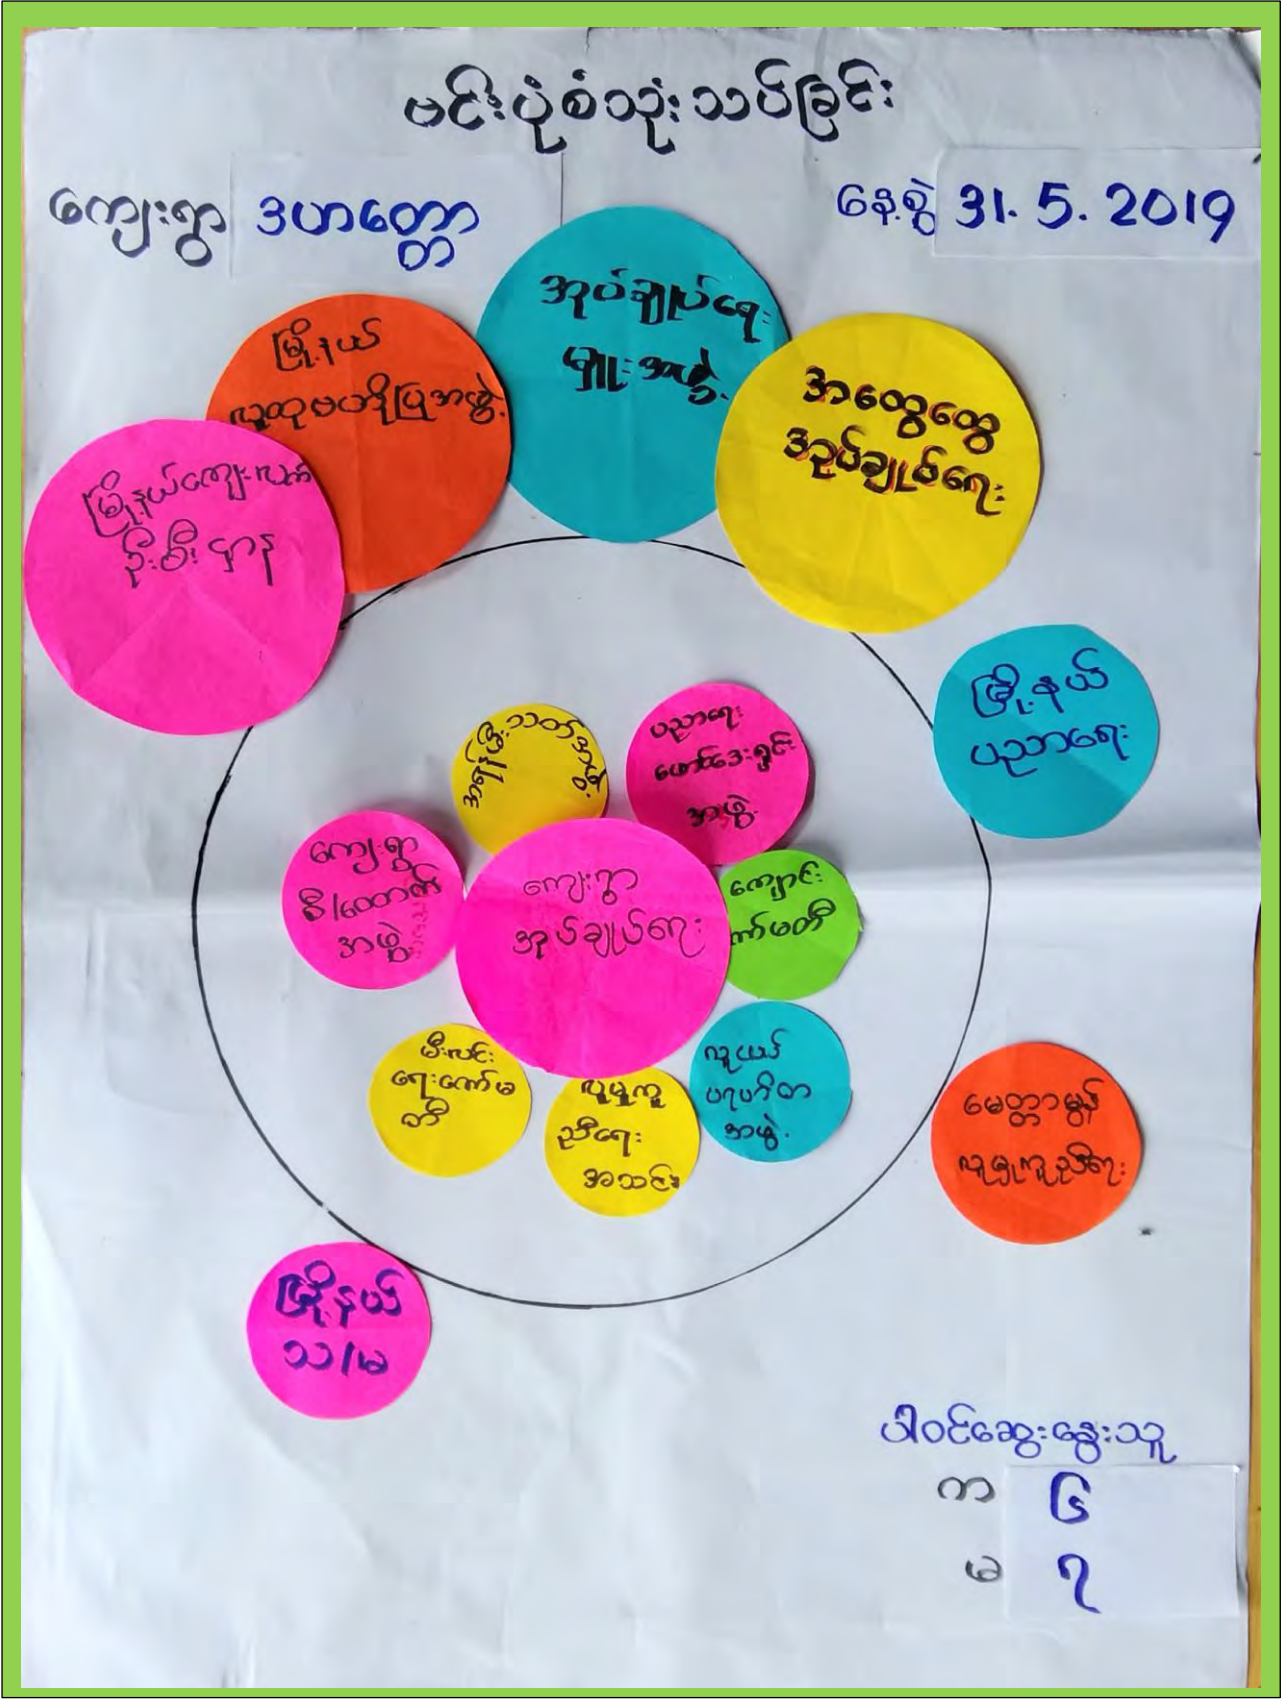 ဗင်းပုံစံသုံးသပ်ခြင်း
ကျေးရွာ ဒဟတ္တော
နေ့စွဲ 31. 5. 2019
အုပ်ချုပ်ရေး
မှူးအဖွဲ့
မြို့နယ်
လူထုဗဟိုပြုအဖွဲ့
အထွေထွေ
အုပ်ချုပ်ရေး
မြို့နယ်ကျေးလက်
ဦးစီးဌာန
မြို့နယ်
ပညာရေး
အရန်မီးသတ်အဖွဲ့
ပညာရေး
ဖောင်ဒေးရှင်း
အဖွဲ့
ကျေးရွာ
စီ/ထောက်
အဖွဲ့
ကျေးရွာ
အုပ်ချုပ်ရေး
ကျောင်း
ကော်မတီ
မီးလင်း
ရေးကော်မ
တီ
လူမှုကူ
ညီရေး
အသင်း
လူငယ်
ပရဟိတ
အဖွဲ့
မေတ္တာမွန်
လူမှုကူညီရေး
မြို့နယ်
သ/မ
ပါဝင်ဆွေးနွေးသူ
က ၆
မ ၇